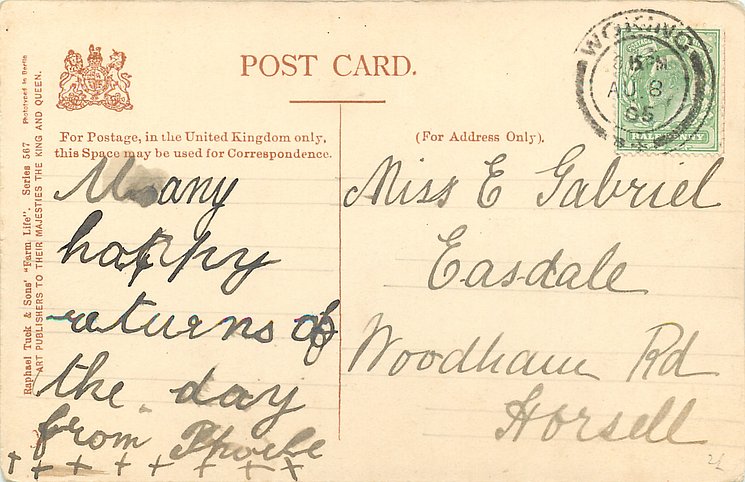 POST CARD.
For Postage, in the United Kingdom only,
this Space may be used for Correspondence.
(For Address Only).
Many
happy
returns of
the day
from Phoebe
Miss E Gabriel
Easdale
Woodham Rd
Horsell
WOKING
8 15 PM
AU 8
05
HALFPENNY
Raphael Tuck & Sons' "Farm Life". Series 567 Phototyped in Berlin
ART PUBLISHERS TO THEIR MAJESTIES THE KING AND QUEEN.